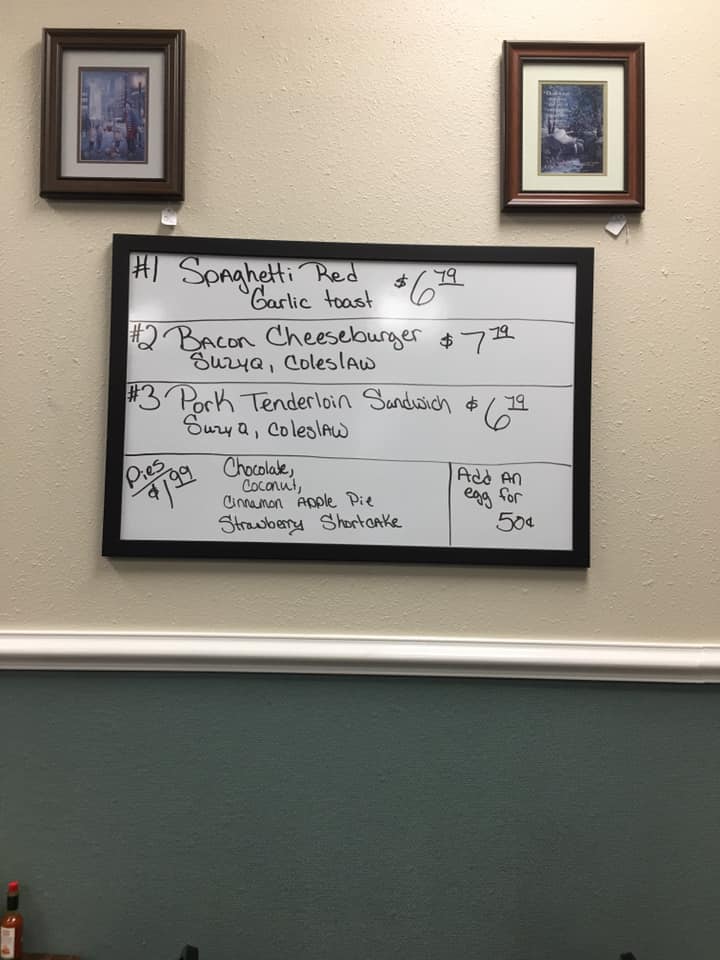 #1 Spaghetti Red $6 79
Garlic toast
#2 Bacon Cheeseburger $7 79
SuzyQ, Coleslaw
#3 Pork Tenderloin Sandwich $6 79
Suzy Q, Coleslaw
Pies $1.99
Chocolate,
Coconut,
Cinnamon Apple Pie
Strawberry Shortcake
Add An
egg for
50¢